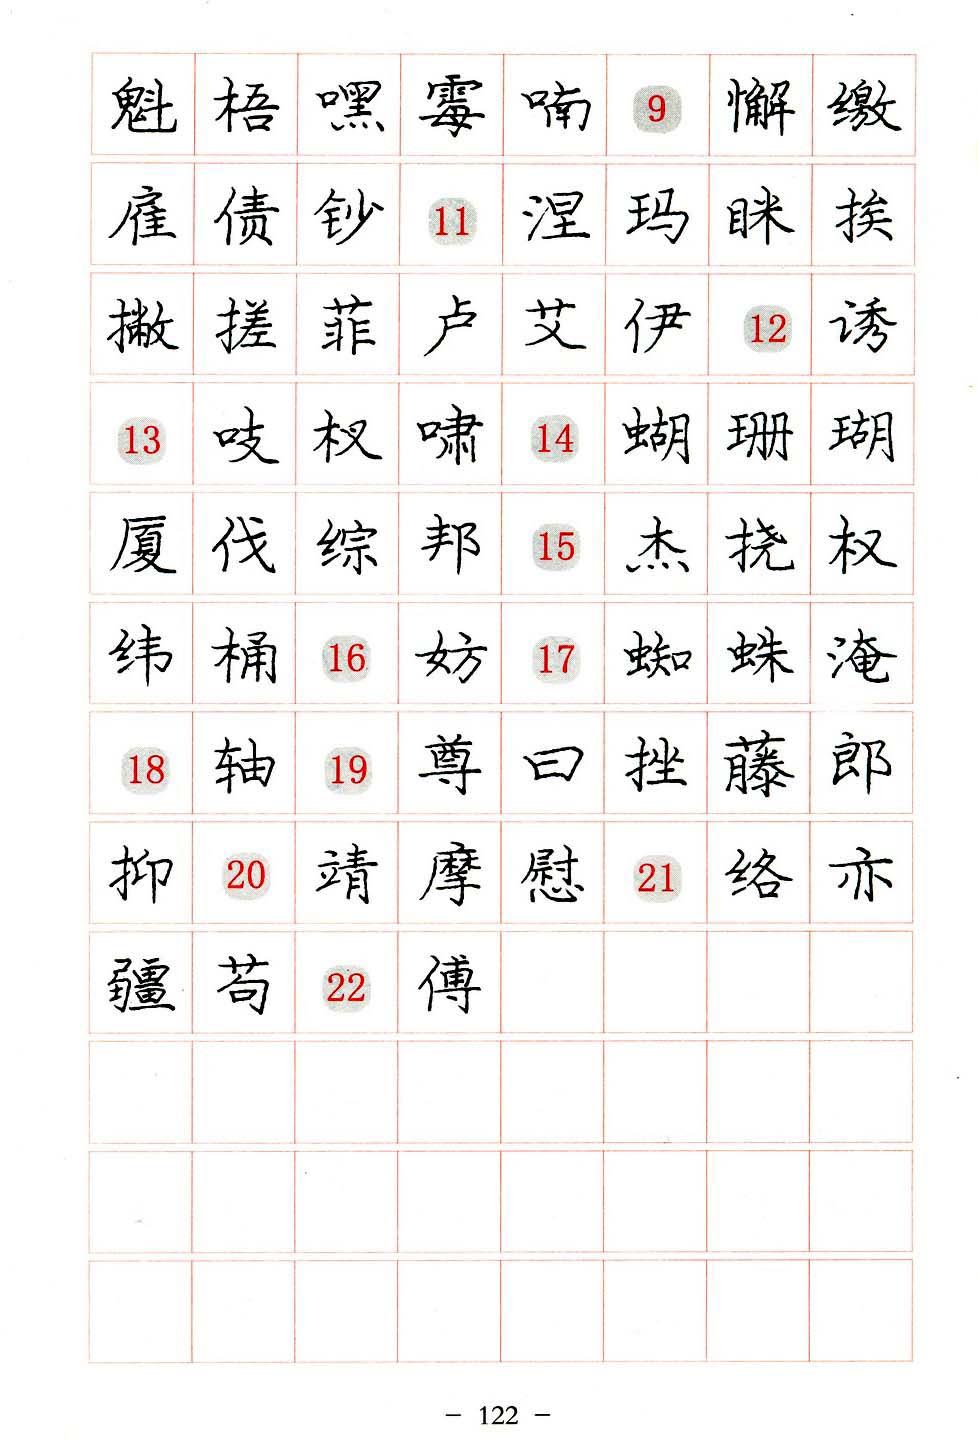 魁梧嘿霉喃9懈缴
雇债钞11涅玛眯挨
撇搓菲卢艾伊12诱
13吱杈啸14蝴珊瑚
厦伐综邦15杰挠权
纬桶16妨17蜘蛛淹
18轴19尊曰挫藤郎
抑20靖摩慰21络亦
疆苟22傅
- 122 -